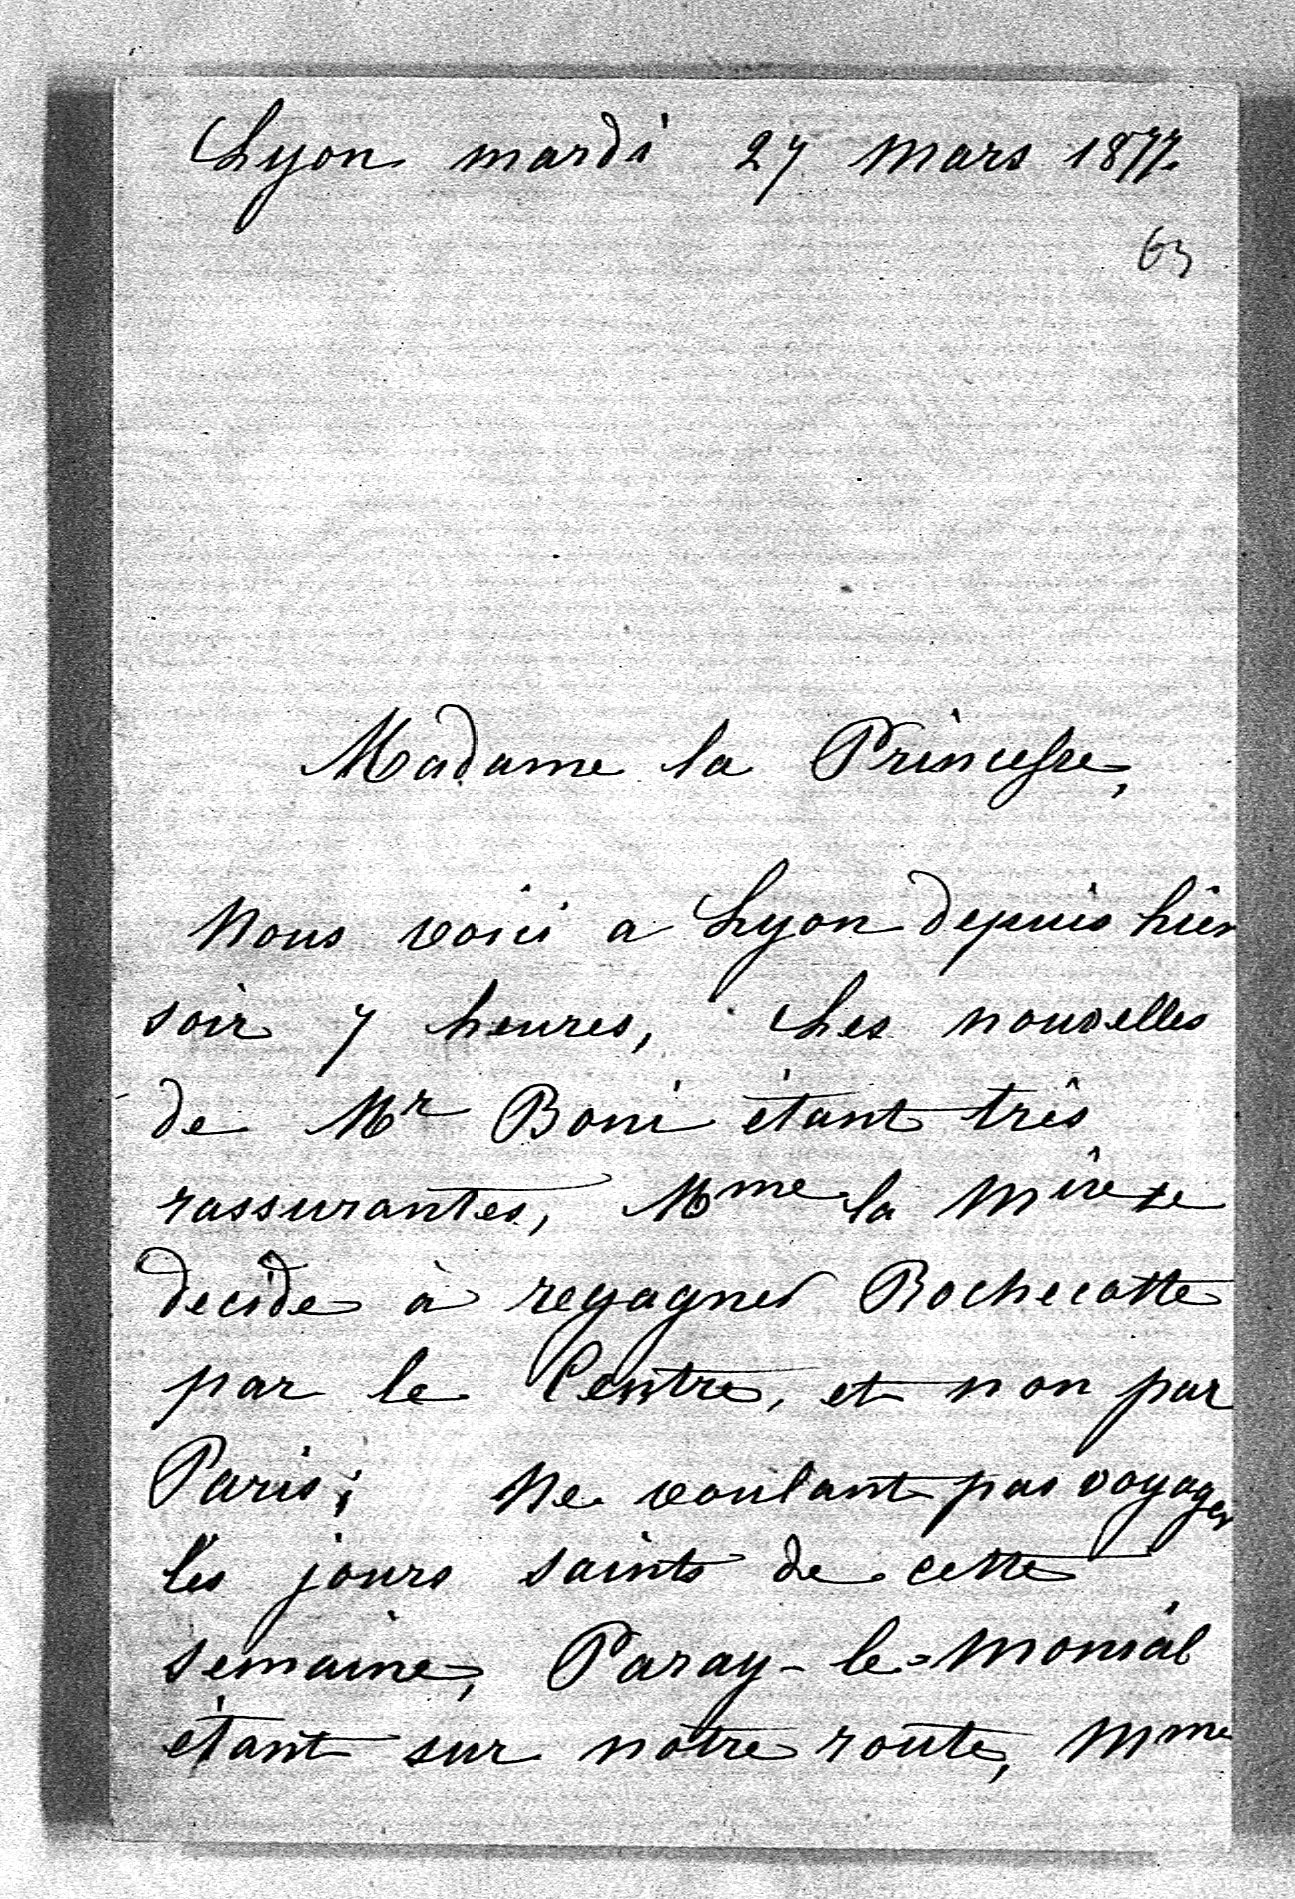 Lyon mardi 27 mars 1877.
63
Madame la Princesse,
Nous voici a Lyon depuis hier
soir 7 heures, Les nouvelles
de Mr Boni étant très
rassurantes, Mme la Mise se
decide à regagner Rochecotte
par le Centre, et non par
Paris; Ne voulant pas voyager
les jours saints de cette
semaine, Paray-le-Monial
étant sur notre route, Mme